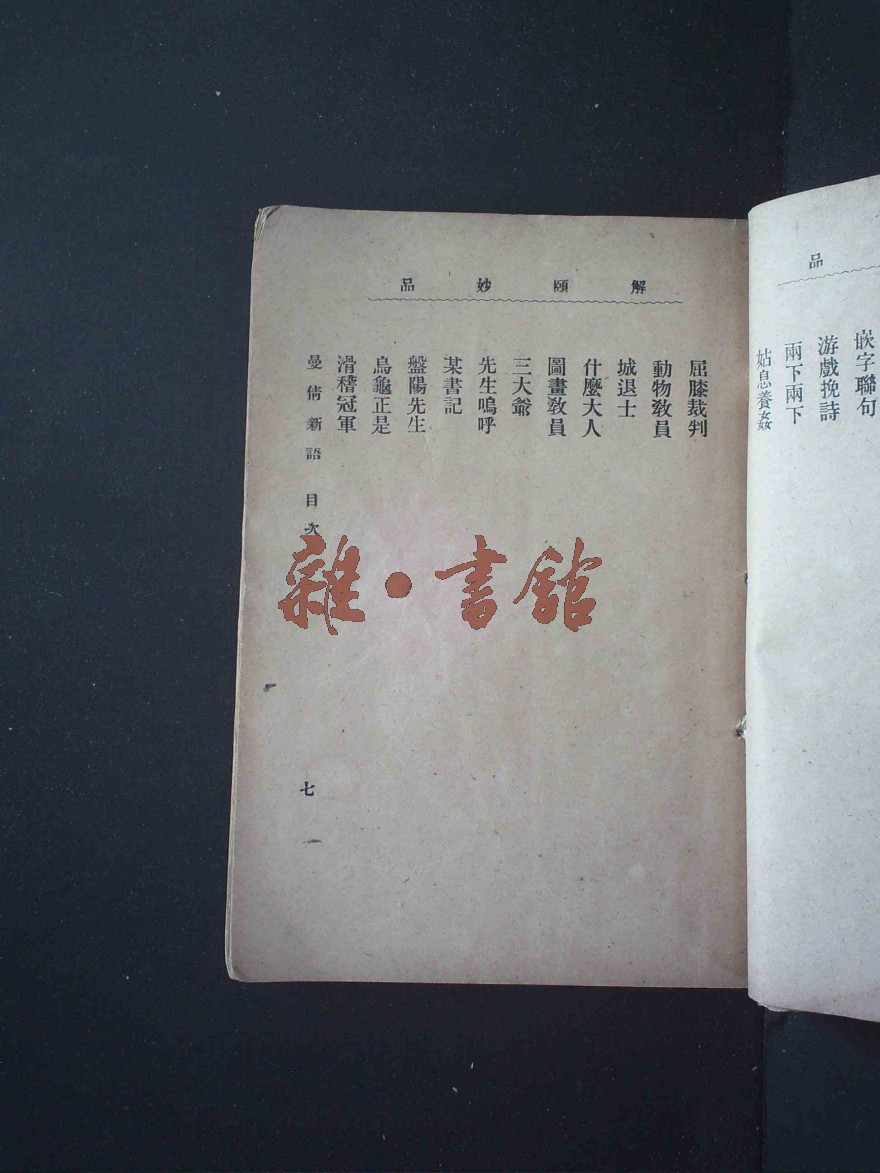 品
嵌字聯句
游戲挽詩
兩下兩下
姑息養姦
解頤妙品
屈膝裁判
動物教員
城退士
什麼大人
圖畫教員
三大爺
先生嗚呼
某書記
盤陽先生
烏龜正是
滑稽冠軍
曼倩新語 目次
七
雜·書館